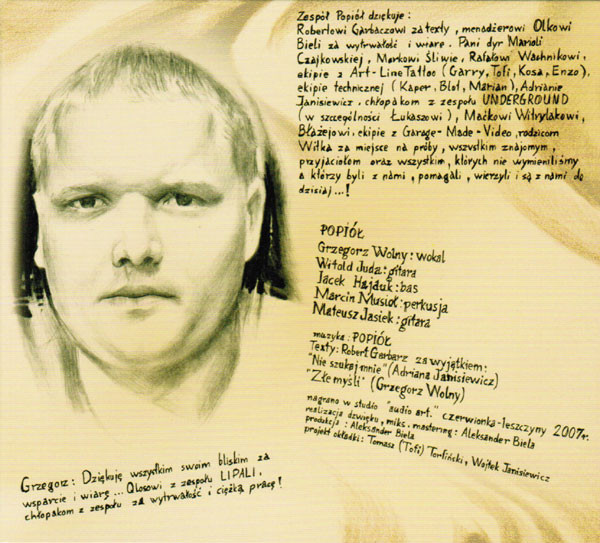 Zespół Popiół dziękuje :
Robertowi Garbaczowi za texty, menadżerowi Olkowi
Bieli za wytrwałość i wiarę. Pani dyr Marioli
Czajkowskiej, Markowi Śliwie, Rafałowi Wachnikowi,
ekipie z Art-Line Tattoo (Garry, Tofi, Kosa, Enzo),
ekipie technicznej (Kaper, Blof, Marian), Adrianie
Janisiewicz. chłopakom z zespołu UNDERGROUND
(w szczególności Łukaszowi), Maćkowi Witrylakowi,
Błażejowi, ekipie z Garage-Made-Video, rodzicom
Witka za miejsce na próby, wszystkim znajomym,
przyjaciołom oraz wszystkim, których nie wymieniliśmy
a którzy byli z nami, pomagali, wierzyli i są z nami do
dzisiaj...!
POPIÓŁ
Grzegorz Wolny : wokal
Witold Juda : gitara
Jacek Hajduk : bas
Marcin Musioł : perkusja
Mateusz Jasiek : gitara
muzyka : POPIÓŁ
Texty : Robert Garbarz za wyjątkiem :
"Nie szukaj mnie" (Adriana Janisiewicz)
"Złe myśli" (Grzegorz Wolny)
nagrano w studio "audio art." czerwionka-leszczyny 2007r.
realizacja dźwięku, miks, mastering : Aleksander Biela
produkcja : Aleksander Biela
projekt okładki : Tomasz (Tofi) Torliński, Wojtek Janisiewicz
Grzegorz : Dziękuję wszystkim swoim bliskim za
wsparcie i wiarę... Qlosowi z zespołu LIPALI,
chłopakom z zespołu za wytrwałość i ciężką pracę!